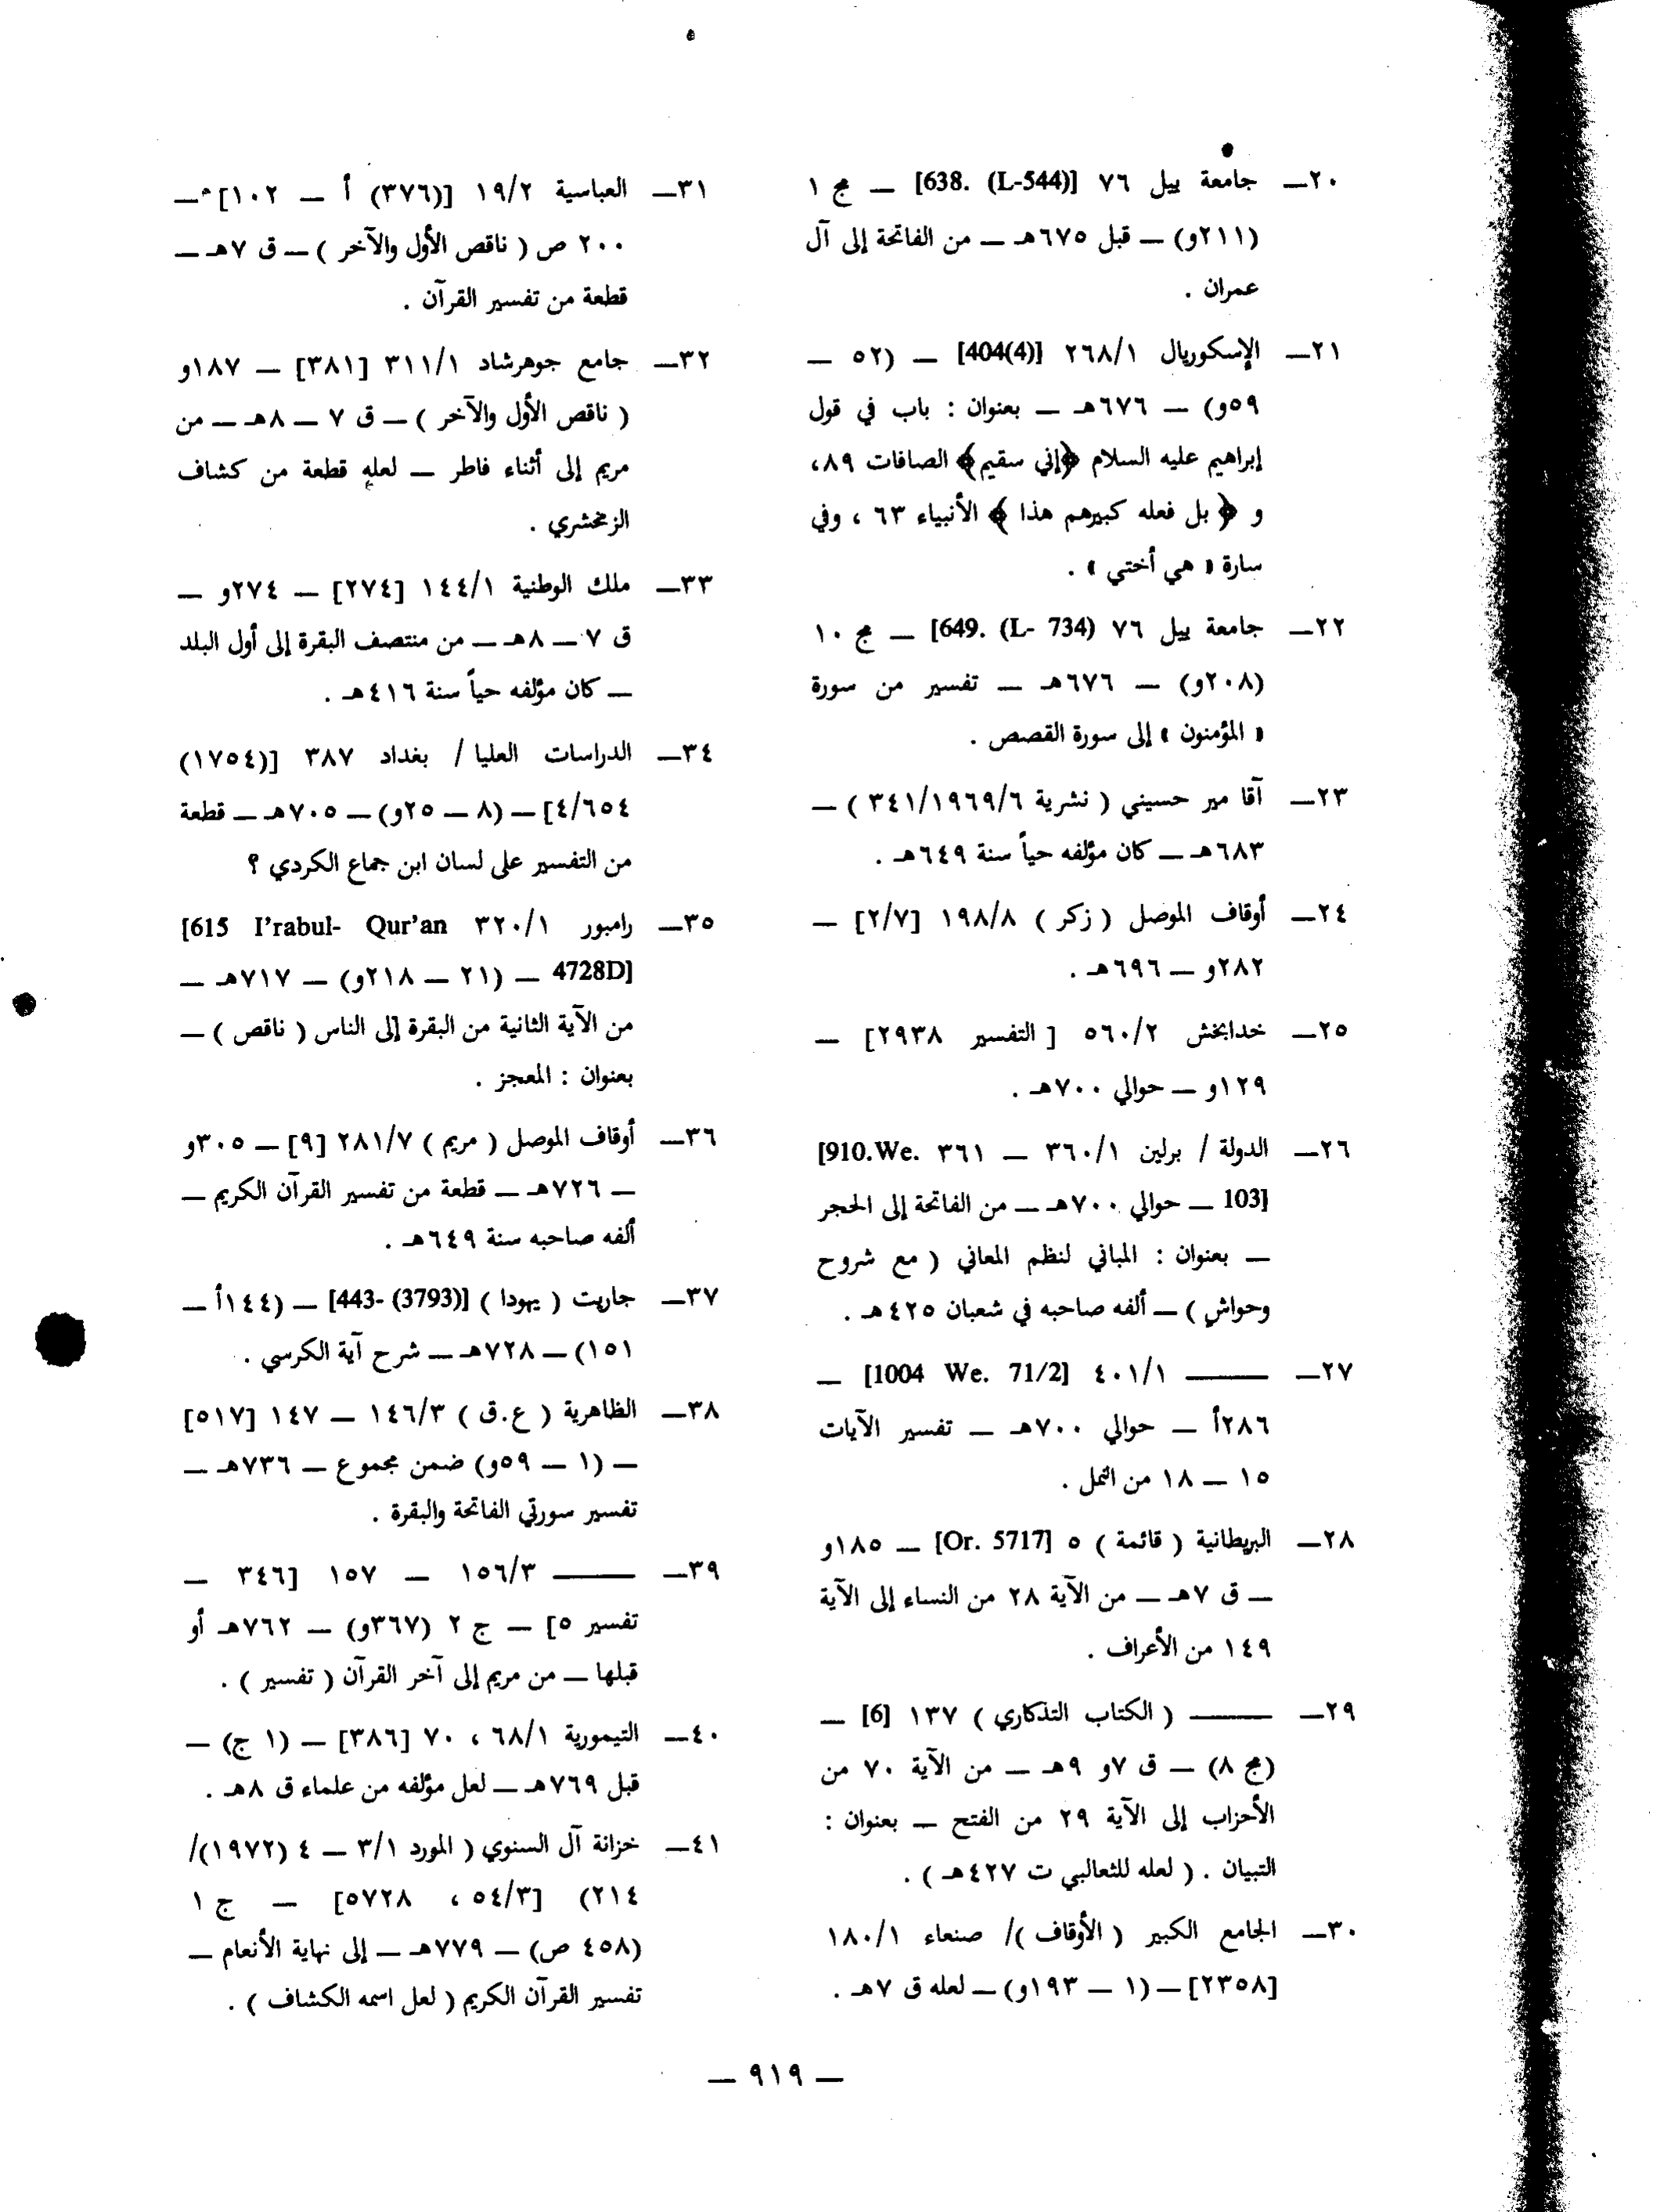 ٢٠ــ جامعة ييل ٧٦ [638. (L-544)] ــ مج ١
(٢١١و) ــ قبل ٦٧٥هـ ــ من الفاتحة إلى آل
عمران .
٢١ــ الإسكوريال ٢٦٨/١ [404(4)] ــ (٥٢ ــ
٥٩و) ــ ٦٧٦هـ ــ بعنوان : باب في قول
إبراهيم عليه السلام ﴿إني سقيم﴾ الصافات ٨٩،
و ﴿ بل فعله كبيرهم هذا ﴾ الأنبياء ٦٣ ، وفي
سارة « هي أختي » .
٢٢ــ جامعة ييل ٧٦ [649. (L- 734) ــ مج ١٠
(٢٠٨و) ــ ٦٧٦هـ ــ تفسير من سورة
« المؤمنون » إلى سورة القصص .
٢٣ــ آقا مير حسيني ( نشرية ٣٤١/١٩٦٩/٦ ) ــ
٦٨٣هـ ــ كان مؤلفه حياً سنة ٦٤٩هـ .
٢٤ــ أوقاف الموصل ( زكر ) ١٩٨/٨ [٢/٧] ــ
٢٨٢و ــ ٦٩٦هـ .
٢٥ــ خدابخش ٥٦٠/٢ [ التفسير ٢٩٣٨] ــ
١٢٩و ــ حوالي ٧٠٠هـ .
٢٦ــ الدولة / برلين ٣٦٠/١ ــ ٣٦١ [910.We.
103] ــ حوالي ٧٠٠هـ ــ من الفاتحة إلى الحجر
ــ بعنوان : المباني لنظم المعاني ( مع شروح
وحواش ) ــ ألفه صاحبه في شعبان ٤٢٥هـ .
٢٧ــ ــــــ ٤٠١/١ [1004 We. 71/2] ــ
٢٨٦أ ــ حوالي ٧٠٠هـ ــ تفسير الآيات
١٥ ــ ١٨ من النمل .
٢٨ــ البريطانية ( قائمة ) ٥ [Or. 5717] ــ ١٨٥و
ــ ق ٧هـ ــ من الآية ٢٨ من النساء إلى الآية
١٤٩ من الأعراف .
٢٩ــ ــــــ ( الكتاب التذكاري ) ١٣٧ [6] ــ
(مج ٨) ــ ق ٧و ٩هـ ــ من الآية ٧٠ من
الأحزاب إلى الآية ٢٩ من الفتح ــ بعنوان :
التبيان . ( لعله للثعالبي ت ٤٢٧هـ ) .
٣٠ــ الجامع الكبير ( الأوقاف )/ صنعاء ١٨٠/١
[٢٣٥٨] ــ (١ ــ ١٩٣و) ــ لعله ق ٧هـ .
٣١ــ العباسية ١٩/٢ [(٣٧٦) أ ــ ١٠٢] ــ
٢٠٠ ص ( ناقص الأول والآخر ) ــ ق ٧هـ ــ
قطعة من تفسير القرآن .
٣٢ــ جامع جوهرشاد ٣١١/١ [٣٨١] ــ ١٨٧و
( ناقص الأول والآخر ) ــ ق ٧ ــ ٨هـ ــ من
مريم إلى أثناء فاطر ــ لعله قطعة من كشاف
الزمخشري .
٣٣ــ ملك الوطنية ١٤٤/١ [٢٧٤] ــ ٢٧٤و ــ
ق ٧ ــ ٨هـ ــ من منتصف البقرة إلى أول البلد
ــ كان مؤلفه حياً سنة ٤١٦هـ .
٣٤ــ الدراسات العليا / بغداد ٣٨٧ [(١٧٥٤)
٤/٦٥٤] ــ (٨ ــ ٢٥و) ــ ٧٠٥هـ ــ قطعة
من التفسير على لسان ابن جماع الكردي ؟
٣٥ــ رامبور ٣٢٠/١ [615 I'rabul- Qur'an
4728D] ــ (٢١ ــ ٢١٨و) ــ ٧١٧هـ ــ
من الآية الثانية من البقرة إلى الناس ( ناقص ) ــ
بعنوان : المعجز .
٣٦ــ أوقاف الموصل ( مريم ) ٢٨١/٧ [٩] ــ ٣٠٥و
ــ ٧٢٦هـ ــ قطعة من تفسير القرآن الكريم ــ
ألفه صاحبه سنة ٦٤٩هـ .
٣٧ــ جاريت ( يهودا ) [443- (3793)] ــ (١٤٤أ ــ
١٥١) ــ ٧٢٨هـ ــ شرح آية الكرسي .
٣٨ــ الظاهرية ( ع.ق ) ١٤٦/٣ ــ ١٤٧ [٥١٧]
ــ (١ ــ ٥٩و) ضمن مجموع ــ ٧٣٦هـ ــ
تفسير سورتي الفاتحة والبقرة .
٣٩ــ ــــــ ١٥٦/٣ ــ ١٥٧ [٣٤٦ ــ
تفسير ٥] ــ ج ٢ (٣٦٧و) ــ ٧٦٢هـ أو
قبلها ــ من مريم إلى آخر القرآن ( تفسير ) .
٤٠ــ التيمورية ٦٨/١ ، ٧٠ [٣٨٦] ــ (١ ج) ــ
قبل ٧٦٩هـ ــ لعل مؤلفه من علماء ق ٨هـ .
٤١ــ خزانة آل السنوي ( المورد ٣/١ ــ ٤ (١٩٧٢)/
٢١٤) [٥٤/٣ ، ٥٧٢٨] ــ ج ١
(٤٥٨ ص) ــ ٧٧٩هـ ــ إلى نهاية الأنعام ــ
تفسير القرآن الكريم ( لعل اسمه الكشاف ) .
ــ ٩١٩ ــ